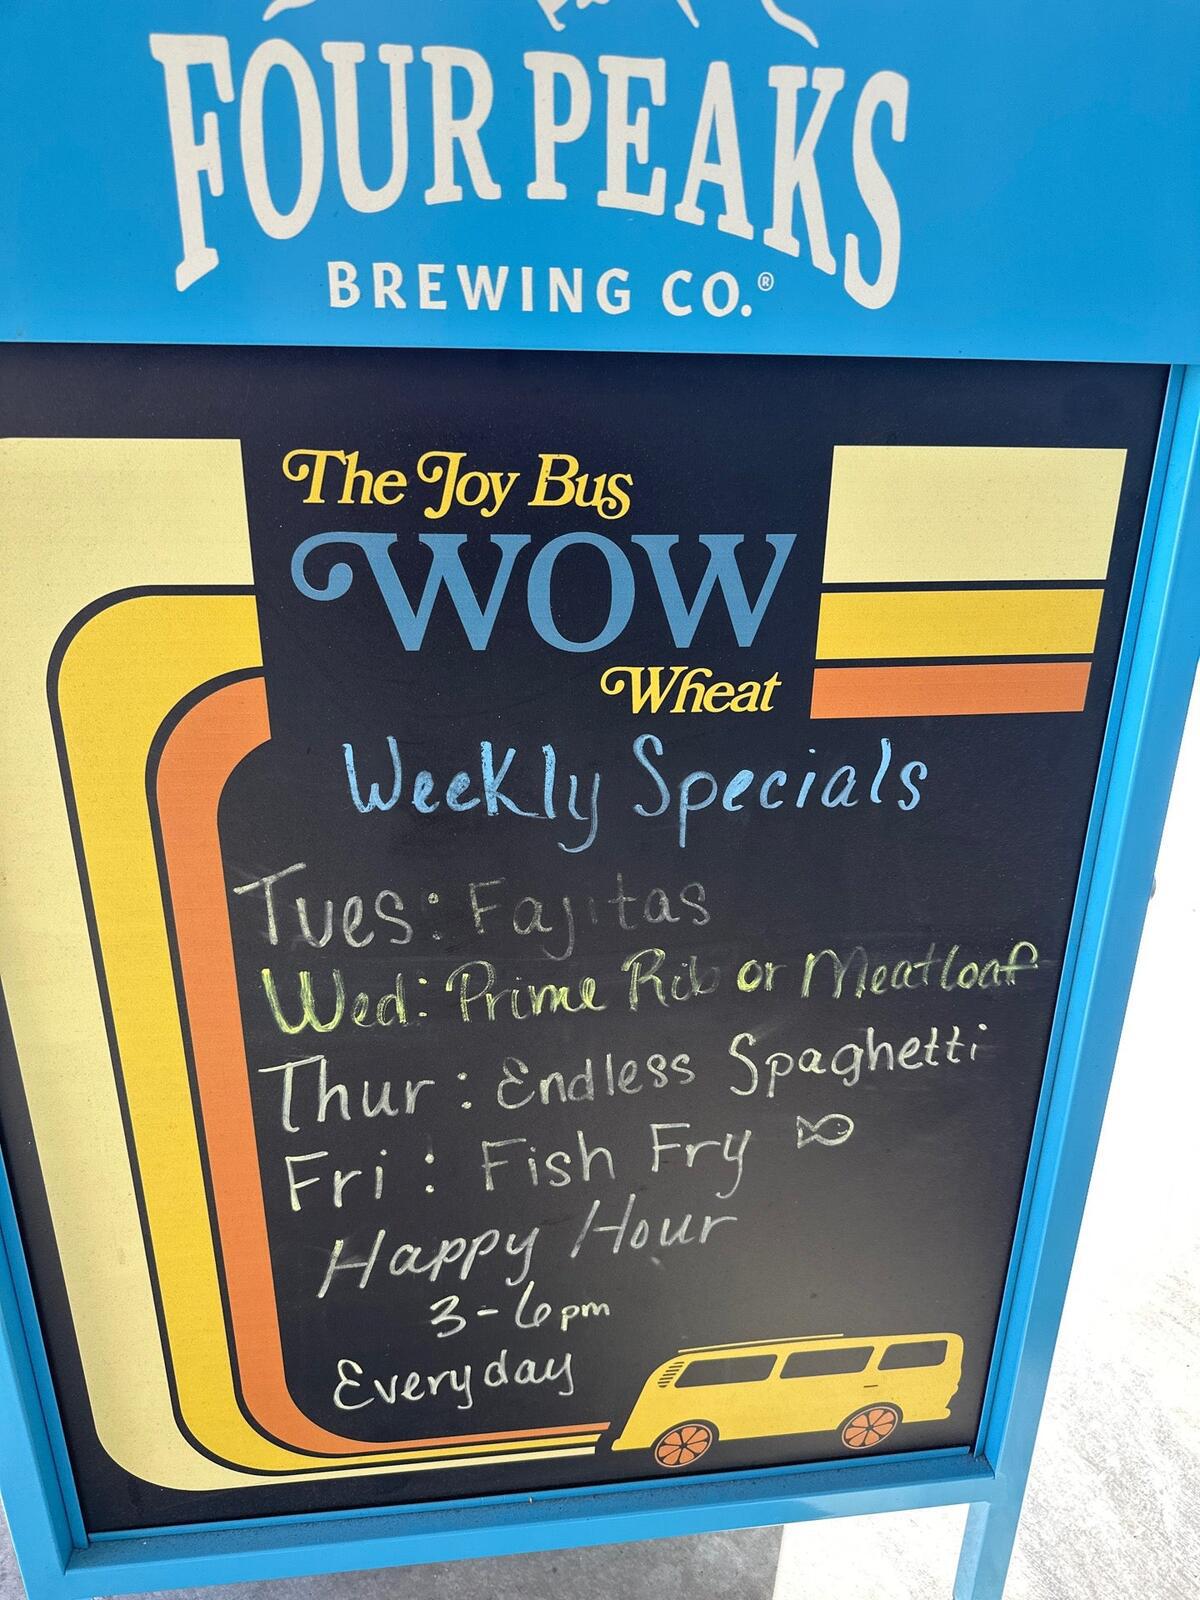 FOUR PEAKS
BREWING CO.®
The Joy Bus
WOW
Wheat
Weekly Specials
Tues: Fajitas
Wed: Prime Rib or Meatloaf
Thur: Endless Spaghetti
Fri: Fish Fry
Happy Hour
3-6pm
Everyday